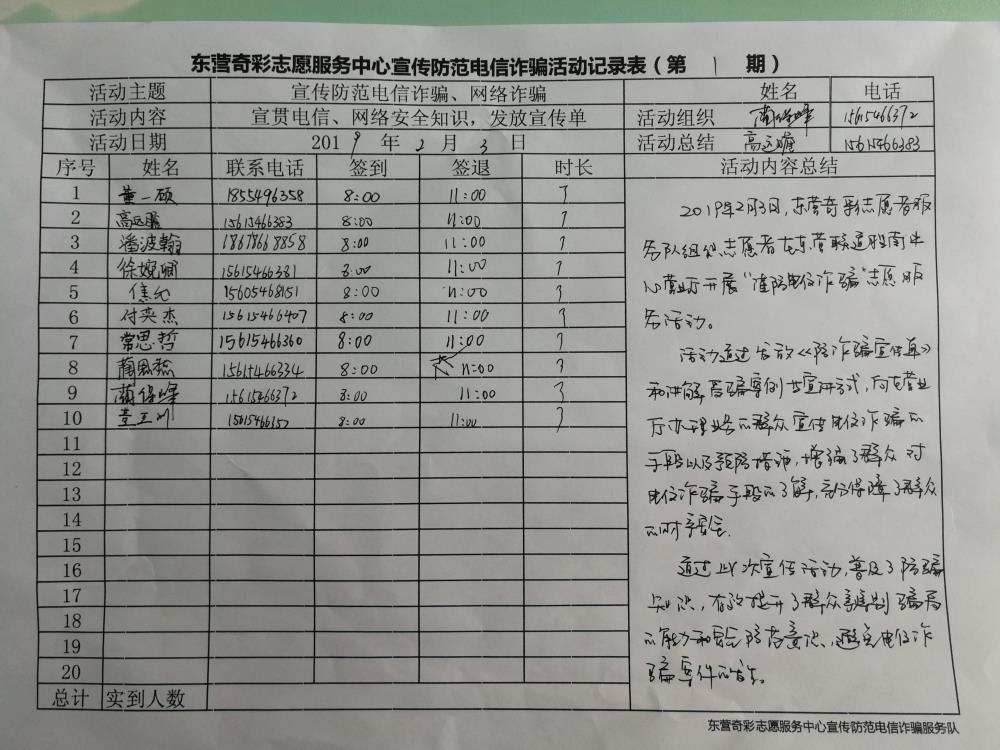 东营奇彩志愿服务中心宣传防范电信诈骗活动记录表（第 1 期）
活动主题 宣传防范电信诈骗、网络诈骗 姓名 电话
活动内容 宣贯电信、网络安全知识，发放宣传单 活动组织 蔺保峰 15615466372
活动日期 2019 年 2 月 3 日 活动总结 高远瞻 15615466383
序号 姓名 联系电话 签到 签退 时长 活动内容总结
1 董一硕 1855496358 8:00 11:00 3
2 高远瞻 15615466383 8:00 11:00 3
3 潘波翰 18678668858 8:00 11:00 3
4 徐婉娴 15615466381 8:00 11:00 3
5 焦允 15605468151 8:00 11:00 3
6 付奕杰 15615466407 8:00 11:00 3
7 常思哲 15615466360 8:00 11:00 3
8 15615466334 8:00 11:00 3
9 蔺保峰 15615466372 8:00 11:00 3
10 董玉洲 15615466357 8:00 11:00 3
11
12
13
14
15
16
17
18
19
20
总计 实到人数
2019年2月3日，东营奇彩志愿者服
务队组织志愿者在东营联通胶南中
心营业厅开展“谨防电信诈骗”志愿服
务活动。
活动通过发放《防诈骗宣传单》
和讲解骗案例等宣讲方式，向在营业
厅办理业务的群众宣传电信诈骗的
手段以及预防措施，增强了群众对
电信诈骗手段的了解，充分保障了群众
的财产安全。
通过此次宣传活动，普及了防骗
知识，有效提升了群众识别骗局
的能力和安全防范意识，避免电信诈
骗案件的发生。
东营奇彩志愿服务中心宣传防范电信诈骗服务队